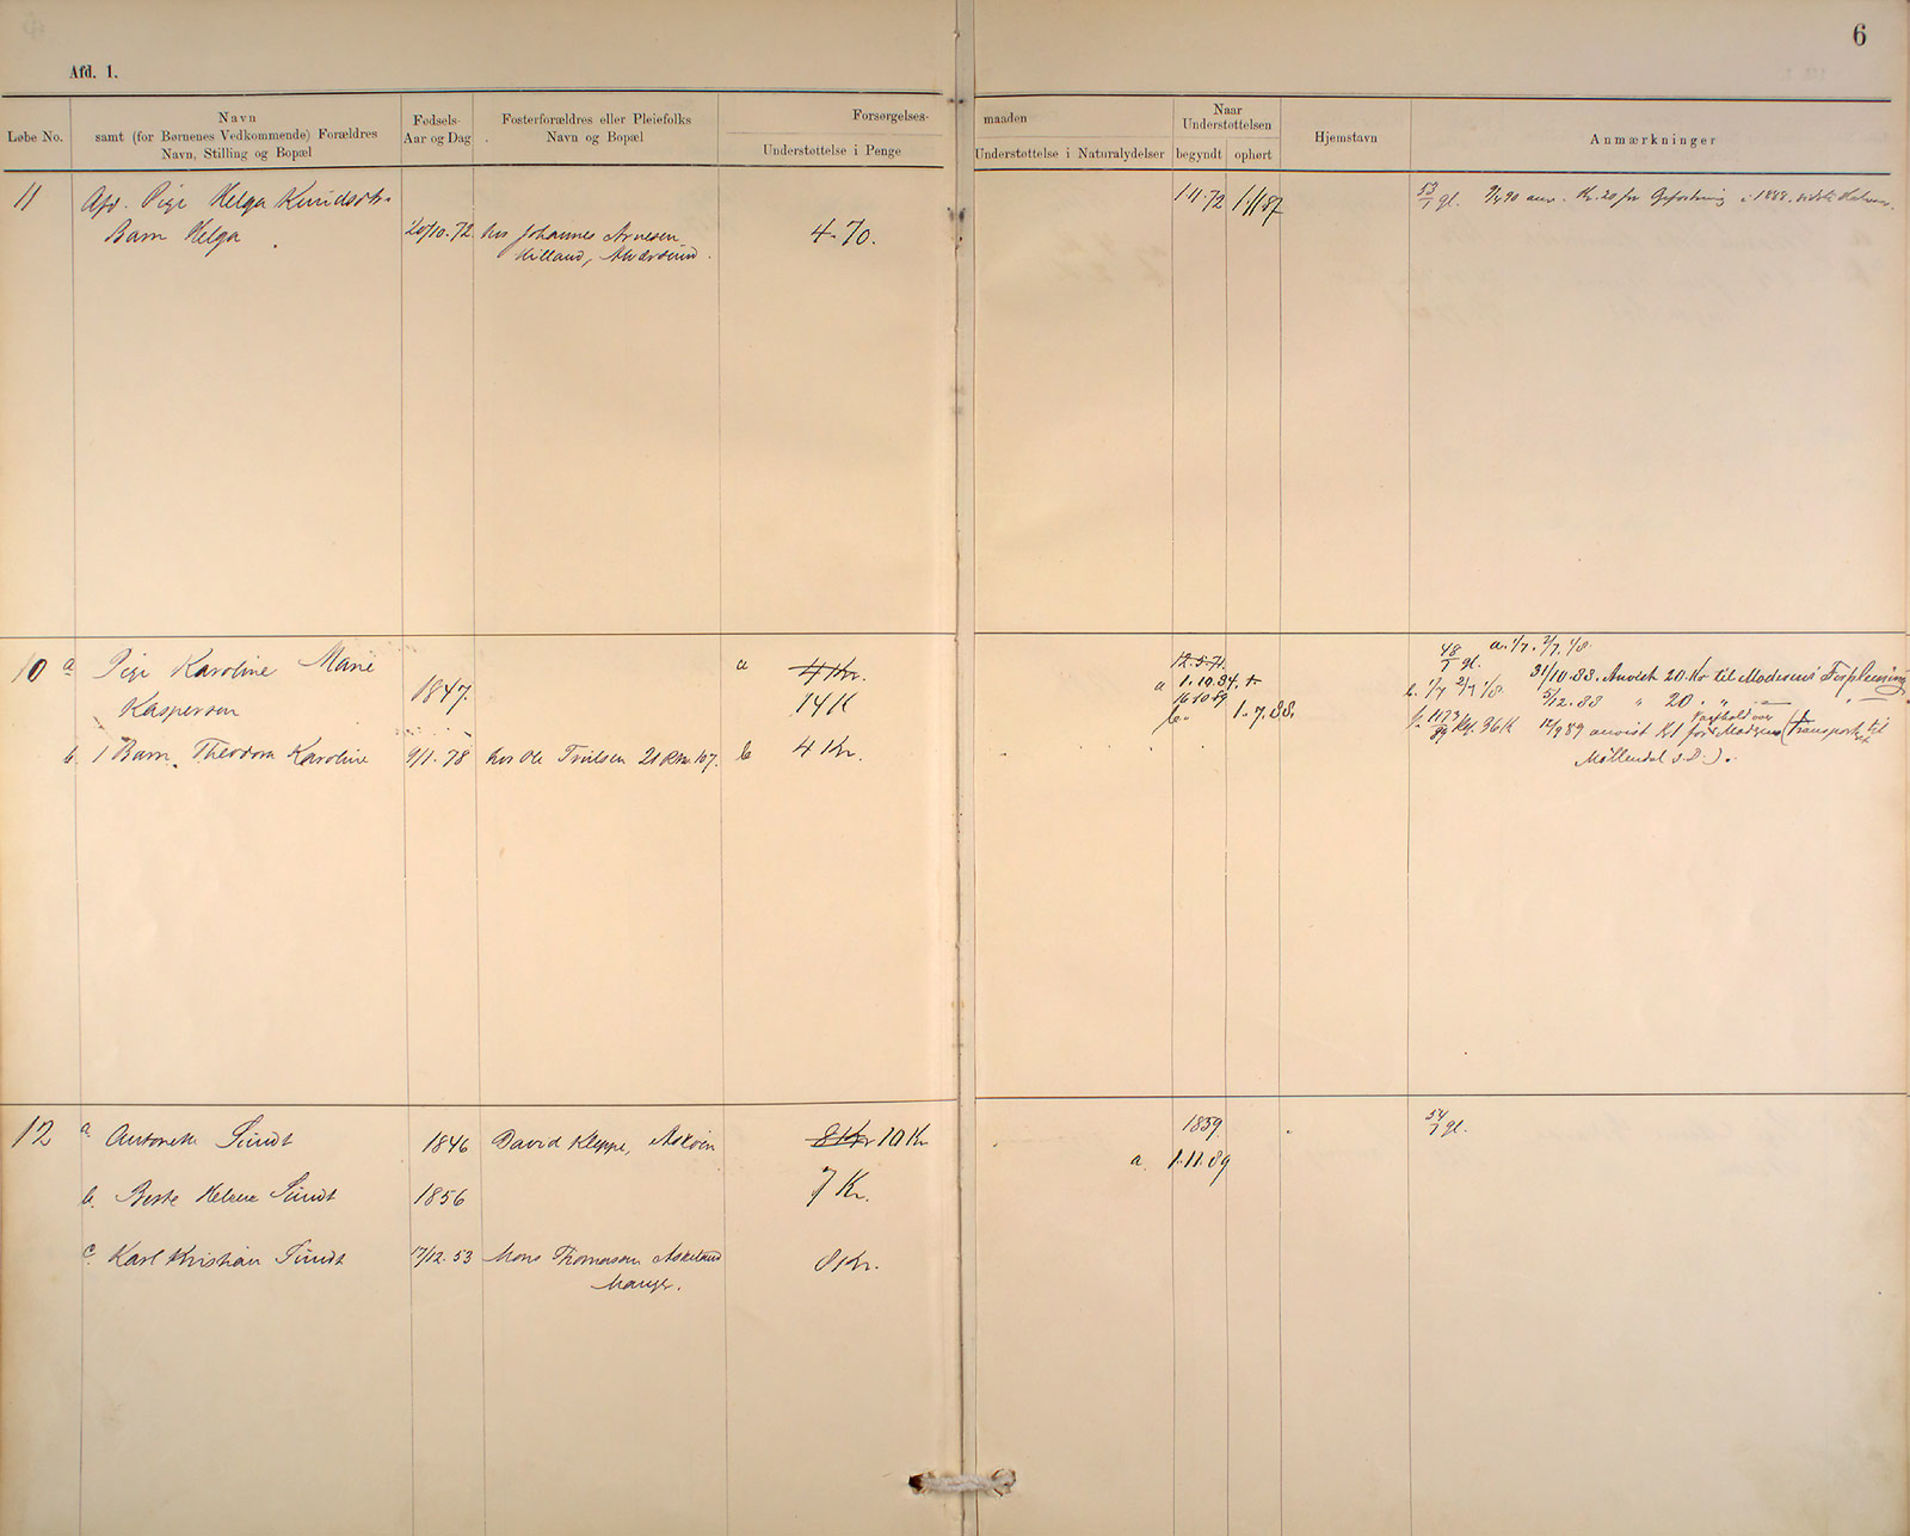 6
Afd. 1.
Løbe No.
Navn
samt (for Børnenes Vedkommende) Forældres
Navn, Stilling og Bopæl
Fødsels-
Aar og Dag
Fosterforældres eller Pleiefolks
Navn og Bopæl
Forsørgelses-
Understøttelse i Penge
maaden
Understøttelse i Naturalydelser
Naar
Understøttelsen
begyndt
ophørt
Hjemstavn
Anmærkninger
11 Afd. Pige Helga Knudsdtr. 1.11.72 1.11.87 53/1 gl. anv. Kr. 20 for i 1888. sidste Halvaar.
Barn Helga 20/10.72. hos Johannes Arnesen 4.70.
Hilland, Alversund.
10 a Pige Karoline Marie a 4 Kr. 12.5.71. 48/1 gl. a. 1/7. 2/7. 1/8
Kaspersen 1847. 14 K a 1.10.84. 31/10.88. Anvist 20 Kr til Moderens Forpleining
16.10.89 b. 1/7 2/7 1/8. 5/12.88 " 20 " "
b. 1.7.88. 1173/89 36 K 12/9 89 anvist K1 for Madsen (Transport til
b. 1 Barn. Theodora Karoline 9/1.78 hos Ole Troilsen 21 Rde. 107. b 4 Kr.
Møllendal s.D.).
12 a. Antonette Sundt 1846 David Kleppe, Askøen 8 Kr 10 Kr 1859. 54/1 gl.
a. 1.11.89
b. Berte Helene Sundt 1856 7 Kr.
c. Karl Kristian Sundt 17/12.53 Mons Thomasen Askeland 8 Kr.
Manger.